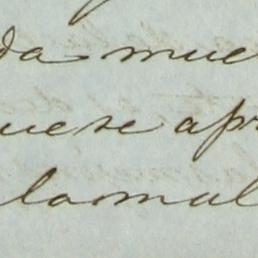 da mue
uese apr
lamal